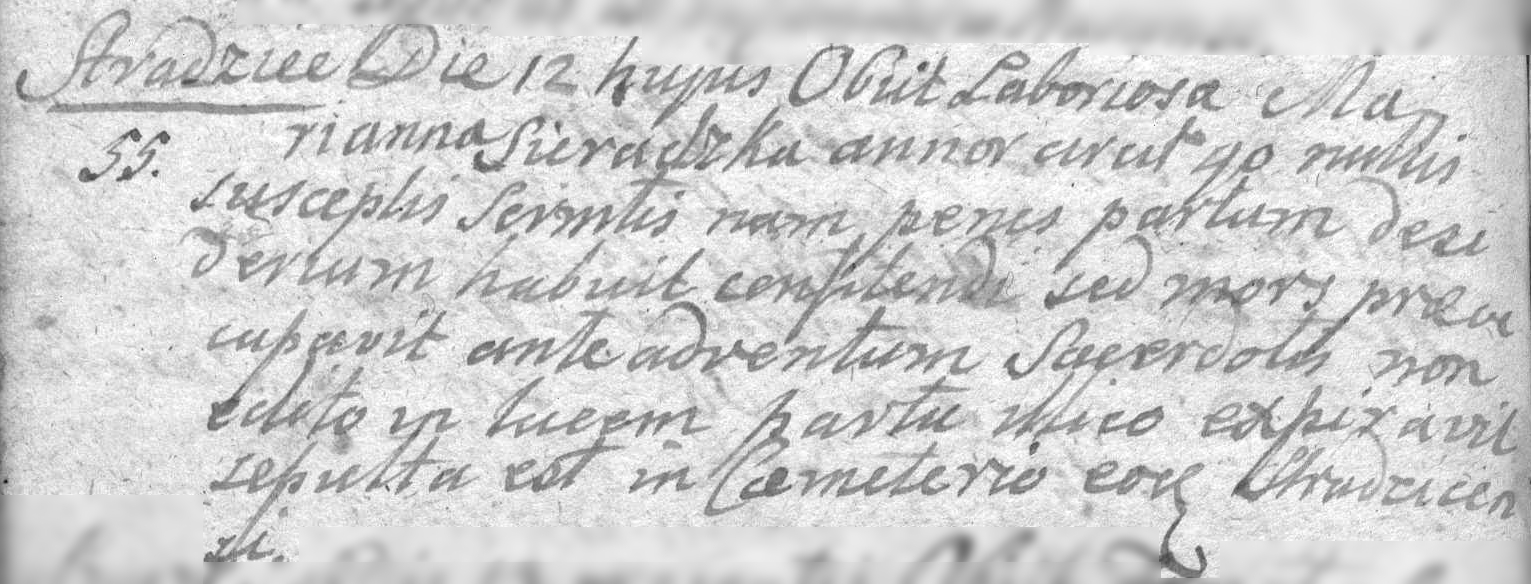 Stradziee Die 12 hujus Obiit Laboriosa Ma
rianna Sieradzka annor circit 40 nullis
55.
susceptis Scrmtis nam penes partum desi
derium habuit confitendi sed mors præoc
cupavit ante adventum Sacerdotis non
edito in lucem partu illico expiravit
sepulta est in Cæmeterio eoq Stradzicen
si.